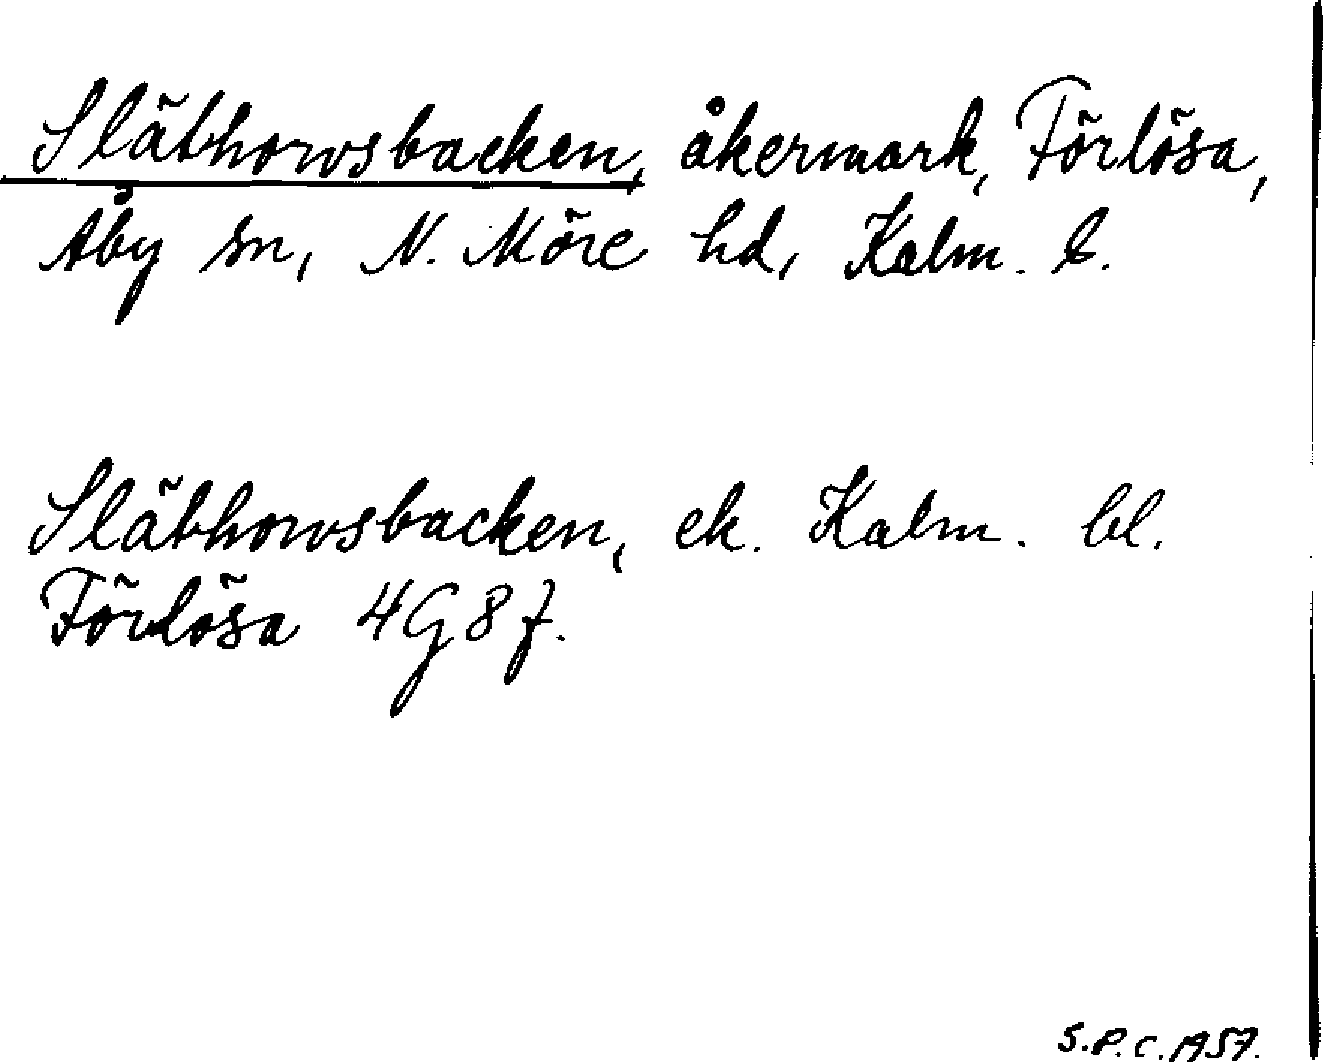 Släthorvsbacken, åkermark, Förlösa,
Åby sn, N. Möre hd, Kalm. l.
Släthorvsbacken, ek. Kalm. bl.
Förlösa 4G8f.
S.P.C. 1957.